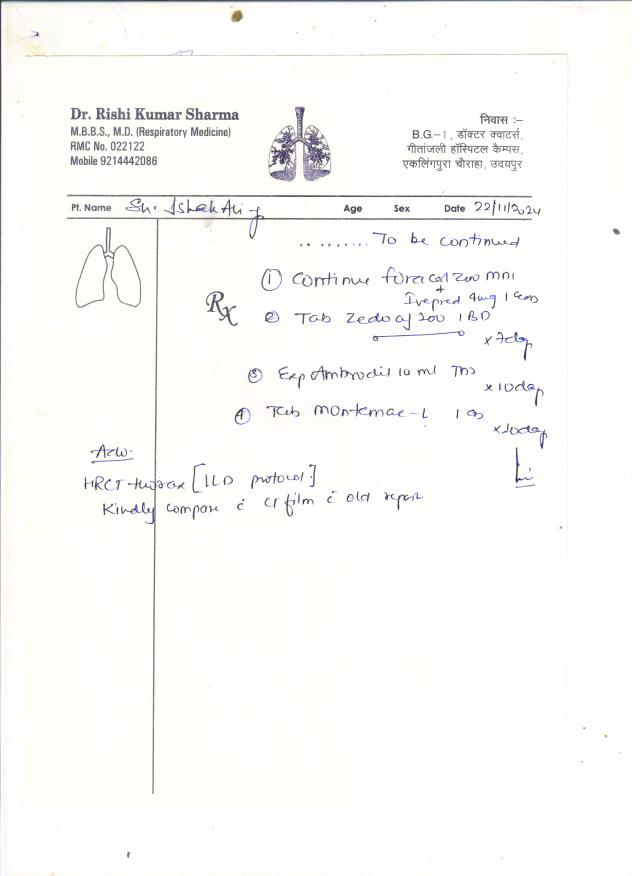 Dr. Rishi Kumar Sharma
M.B.B.S., M.D. (Respiratory Medicine)
RMC No. 022122
Mobile 9214442086
निवास :–
B.G.–1, डॉक्टर क्वाटर्स,
गीतांजली हॉस्पिटल कैम्पस,
एकलिंगपुरा चौराहा, उदयपुर
Pt. Name Sh. Ishak Ali Age Sex Date 22/11/2024
.......... To be continued
Rx
① Continue foracort 200 MDI
+
② Tab 200 1 BD
x 7 days
③ Exp Ambrodil 10 ml TDS
x 10 days
④ Tab Montemac-L 1
x 10 days
Adv.
HRCT thorax [ILD protocol]
Kindly compare c̄ CT film c̄ old report